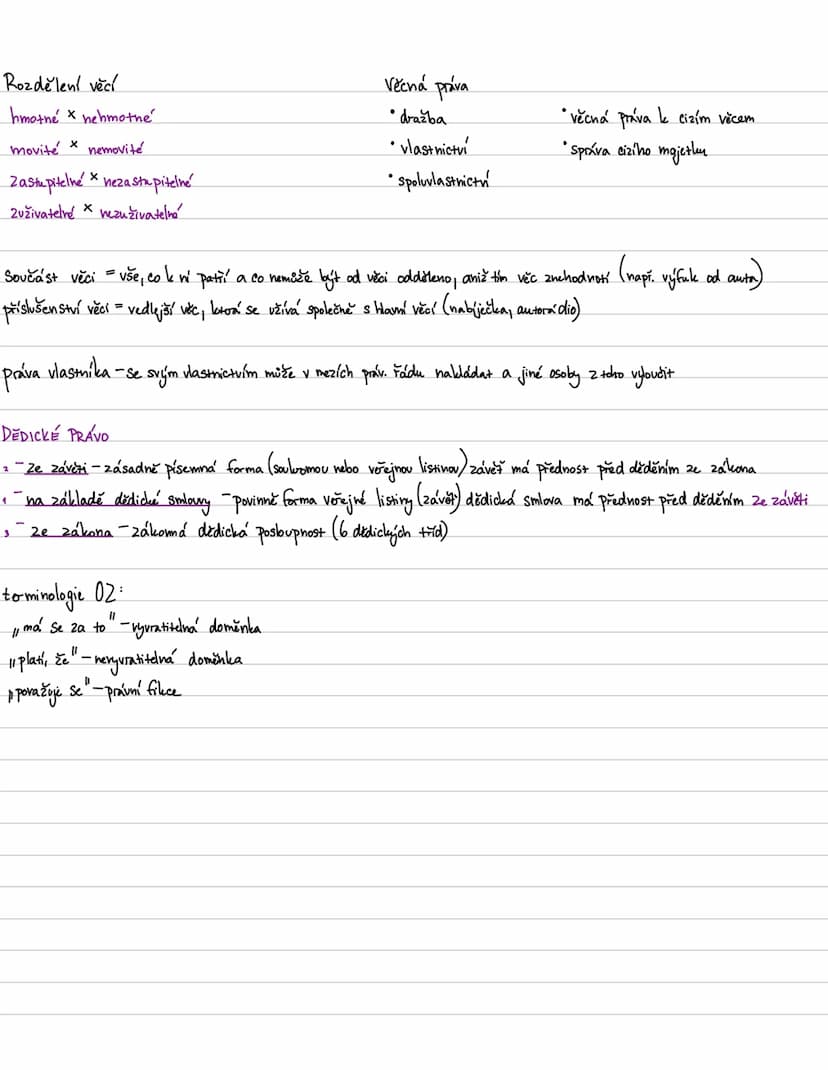 Rozdělení věcí
hmotné × nehmotné
movité × nemovité
zastupitelné × nezastupitelné
zuživatelné × nezuživatelné
Věcná práva
• dražba
• vlastnictví
• spoluvlastnictví
• věcná práva k cizím věcem
• správa cizího majetku
Součást věci = vše, co k ní patří a co nemůže být od věci odděleno, aniž tím věc znehodnotí (např. výfuk od auta)
příslušenství věci = vedlejší věc, která se užívá společně s hlavní věcí (nabíječka, autorádio)
práva vlastníka – se svým vlastnictvím může v mezích práv. řádu nakládat a jiné osoby z toho vyloučit
DĚDICKÉ PRÁVO
2 – ze závěti – zásadně písemná forma (soukromou nebo veřejnou listinou) závěť má přednost před děděním ze zákona
1 – na základě dědické smlouvy – povinně forma veřejné listiny (závěť) dědická smlova má přednost před děděním ze závěti
3 – ze zákona – zákonná dědická posloupnost (6 dědických tříd)
terminologie OZ:
„má se za to" – vyvratitelná domněnka
„platí, že" – nevyvratitelná domněnka
„považuje se" – právní fikce